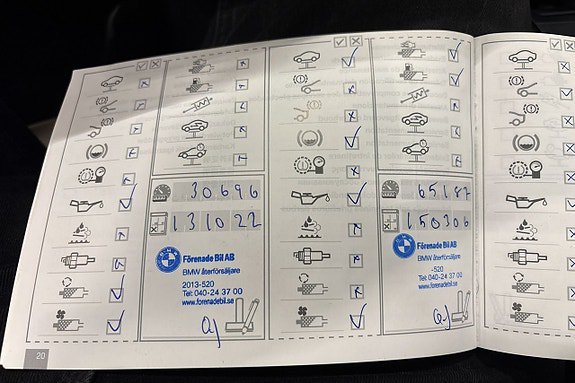 30696
131022
Förenade Bil AB
BMW återförsäljare
2013-520
Tel: 040-24 37 00
www.forenadebil.se
65187
150306
Förenade Bil AB
BMW återförsäljare
-520
Tel: 040-24 37 00
www.forenadebil.se
20